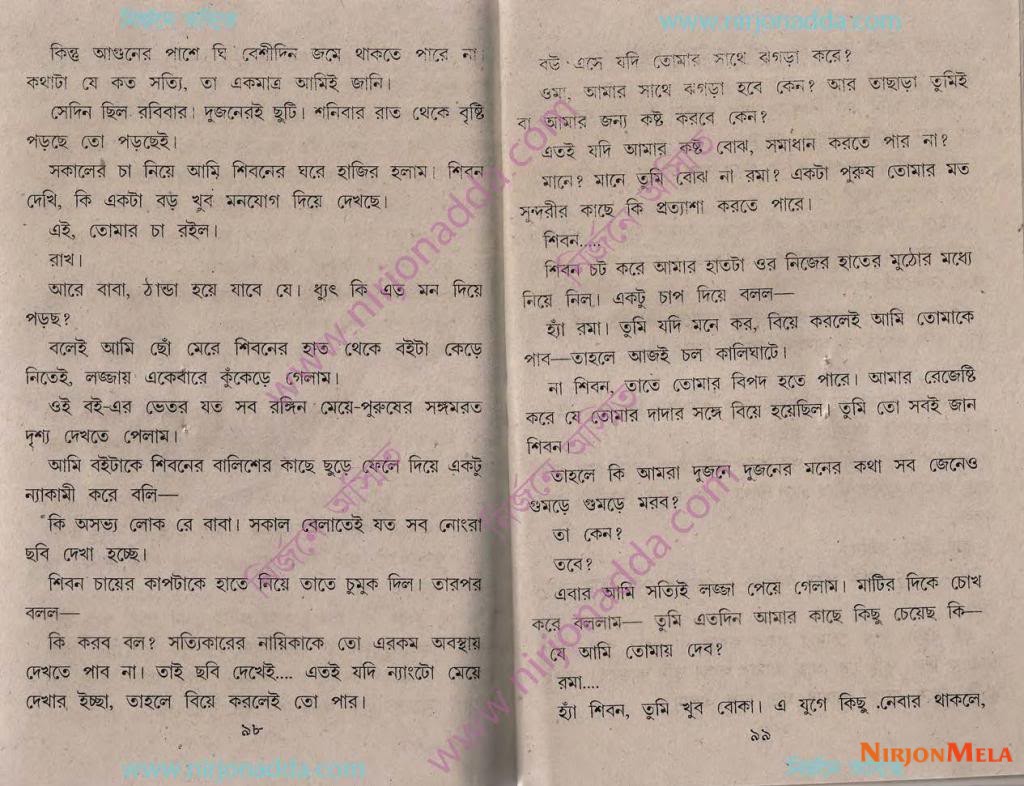 www.nirjonadda.com
কিন্তু আগুনের পাশে ঘি বেশীদিন জমে থাকতে পারে না।
কথাটা যে কত সত্যি, তা একমাত্র আমিই জানি।
সেদিন ছিল রবিবার। দুজনেরই ছুটি। শনিবার রাত থেকে বৃষ্টি
পড়ছে তো পড়ছেই।
সকালের চা নিয়ে আমি শিবনের ঘরে হাজির হলাম। শিবন
দেখি, কি একটা বড় খুব মনযোগ দিয়ে দেখছে।
এই, তোমার চা রইল।
রাখ।
আরে বাবা, ঠান্ডা হয়ে যাবে যে। ধ্যুৎ কি এত মন দিয়ে
পড়ছ?
বলেই আমি ছোঁ মেরে শিবনের হাত থেকে বইটা কেড়ে
নিতেই, লজ্জায় একেবারে কুঁকেড়ে গেলাম।
ওই বই-এর ভেতর যত সব রঙ্গিন মেয়ে-পুরুষের সঙ্গমরত
দৃশ্য দেখতে পেলাম।
আমি বইটাকে শিবনের বালিশের কাছে ছুড়ে ফেলে দিয়ে একটু
ন্যাকামী করে বলি—
কি অসভ্য লোক রে বাবা। সকাল বেলাতেই যত সব নোংরা
ছবি দেখা হচ্ছে।
শিবন চায়ের কাপটাকে হাতে নিয়ে তাতে চুমুক দিল। তারপর
বলল—
কি করব বল? সত্যিকারের নায়িকাকে তো এরকম অবস্থায়
দেখতে পাব না। তাই ছবি দেখেই.... এতই যদি ন্যাংটো মেয়ে
দেখার ইচ্ছা, তাহলে বিয়ে করলেই তো পার।
৯৮
www.nirjonadda.com
বউ এসে যদি তোমার সাথে ঝগড়া করে?
ওমা, আমার সাথে ঝগড়া হবে কেন? আর তাছাড়া তুমিই
বা আমার জন্য কষ্ট করবে কেন?
এতই যদি আমার কষ্ট বোঝ, সমাধান করতে পার না?
মানে? মানে তুমি বোঝ না রমা? একটা পুরুষ তোমার মত
সুন্দরীর কাছে কি প্রত্যাশা করতে পারে।
শিবন.....
শিবন চট করে আমার হাতটা ওর নিজের হাতের মুঠোর মধ্যে
নিয়ে নিল। একটু চাপ দিয়ে বলল—
হ্যাঁ রমা। তুমি যদি মনে কর, বিয়ে করলেই আমি তোমাকে
পাব—তাহলে আজই চল কালিঘাটে।
না শিবন, তাতে তোমার বিপদ হতে পারে। আমার রেজেষ্টি
করে যে তোমার দাদার সঙ্গে বিয়ে হয়েছিল। তুমি তো সবই জান
শিবন।
তাহলে কি আমরা দুজনে দুজনের মনের কথা সব জেনেও
গুমড়ে গুমড়ে মরব?
তা কেন?
তবে?
এবার আমি সত্যিই লজ্জা পেয়ে গেলাম। মাটির দিকে চোখ
করে বললাম— তুমি এতদিন আমার কাছে কিছু চেয়েছ কি—
যে আমি তোমায় দেব?
রমা....
হ্যাঁ শিবন, তুমি খুব বোকা। এ যুগে কিছু নেবার থাকলে,
৯৯
www.nirjonadda.com
নির্জনে অসিত
নির্জনে অসিত
www.nirjonadda.com
NIRJONMELA